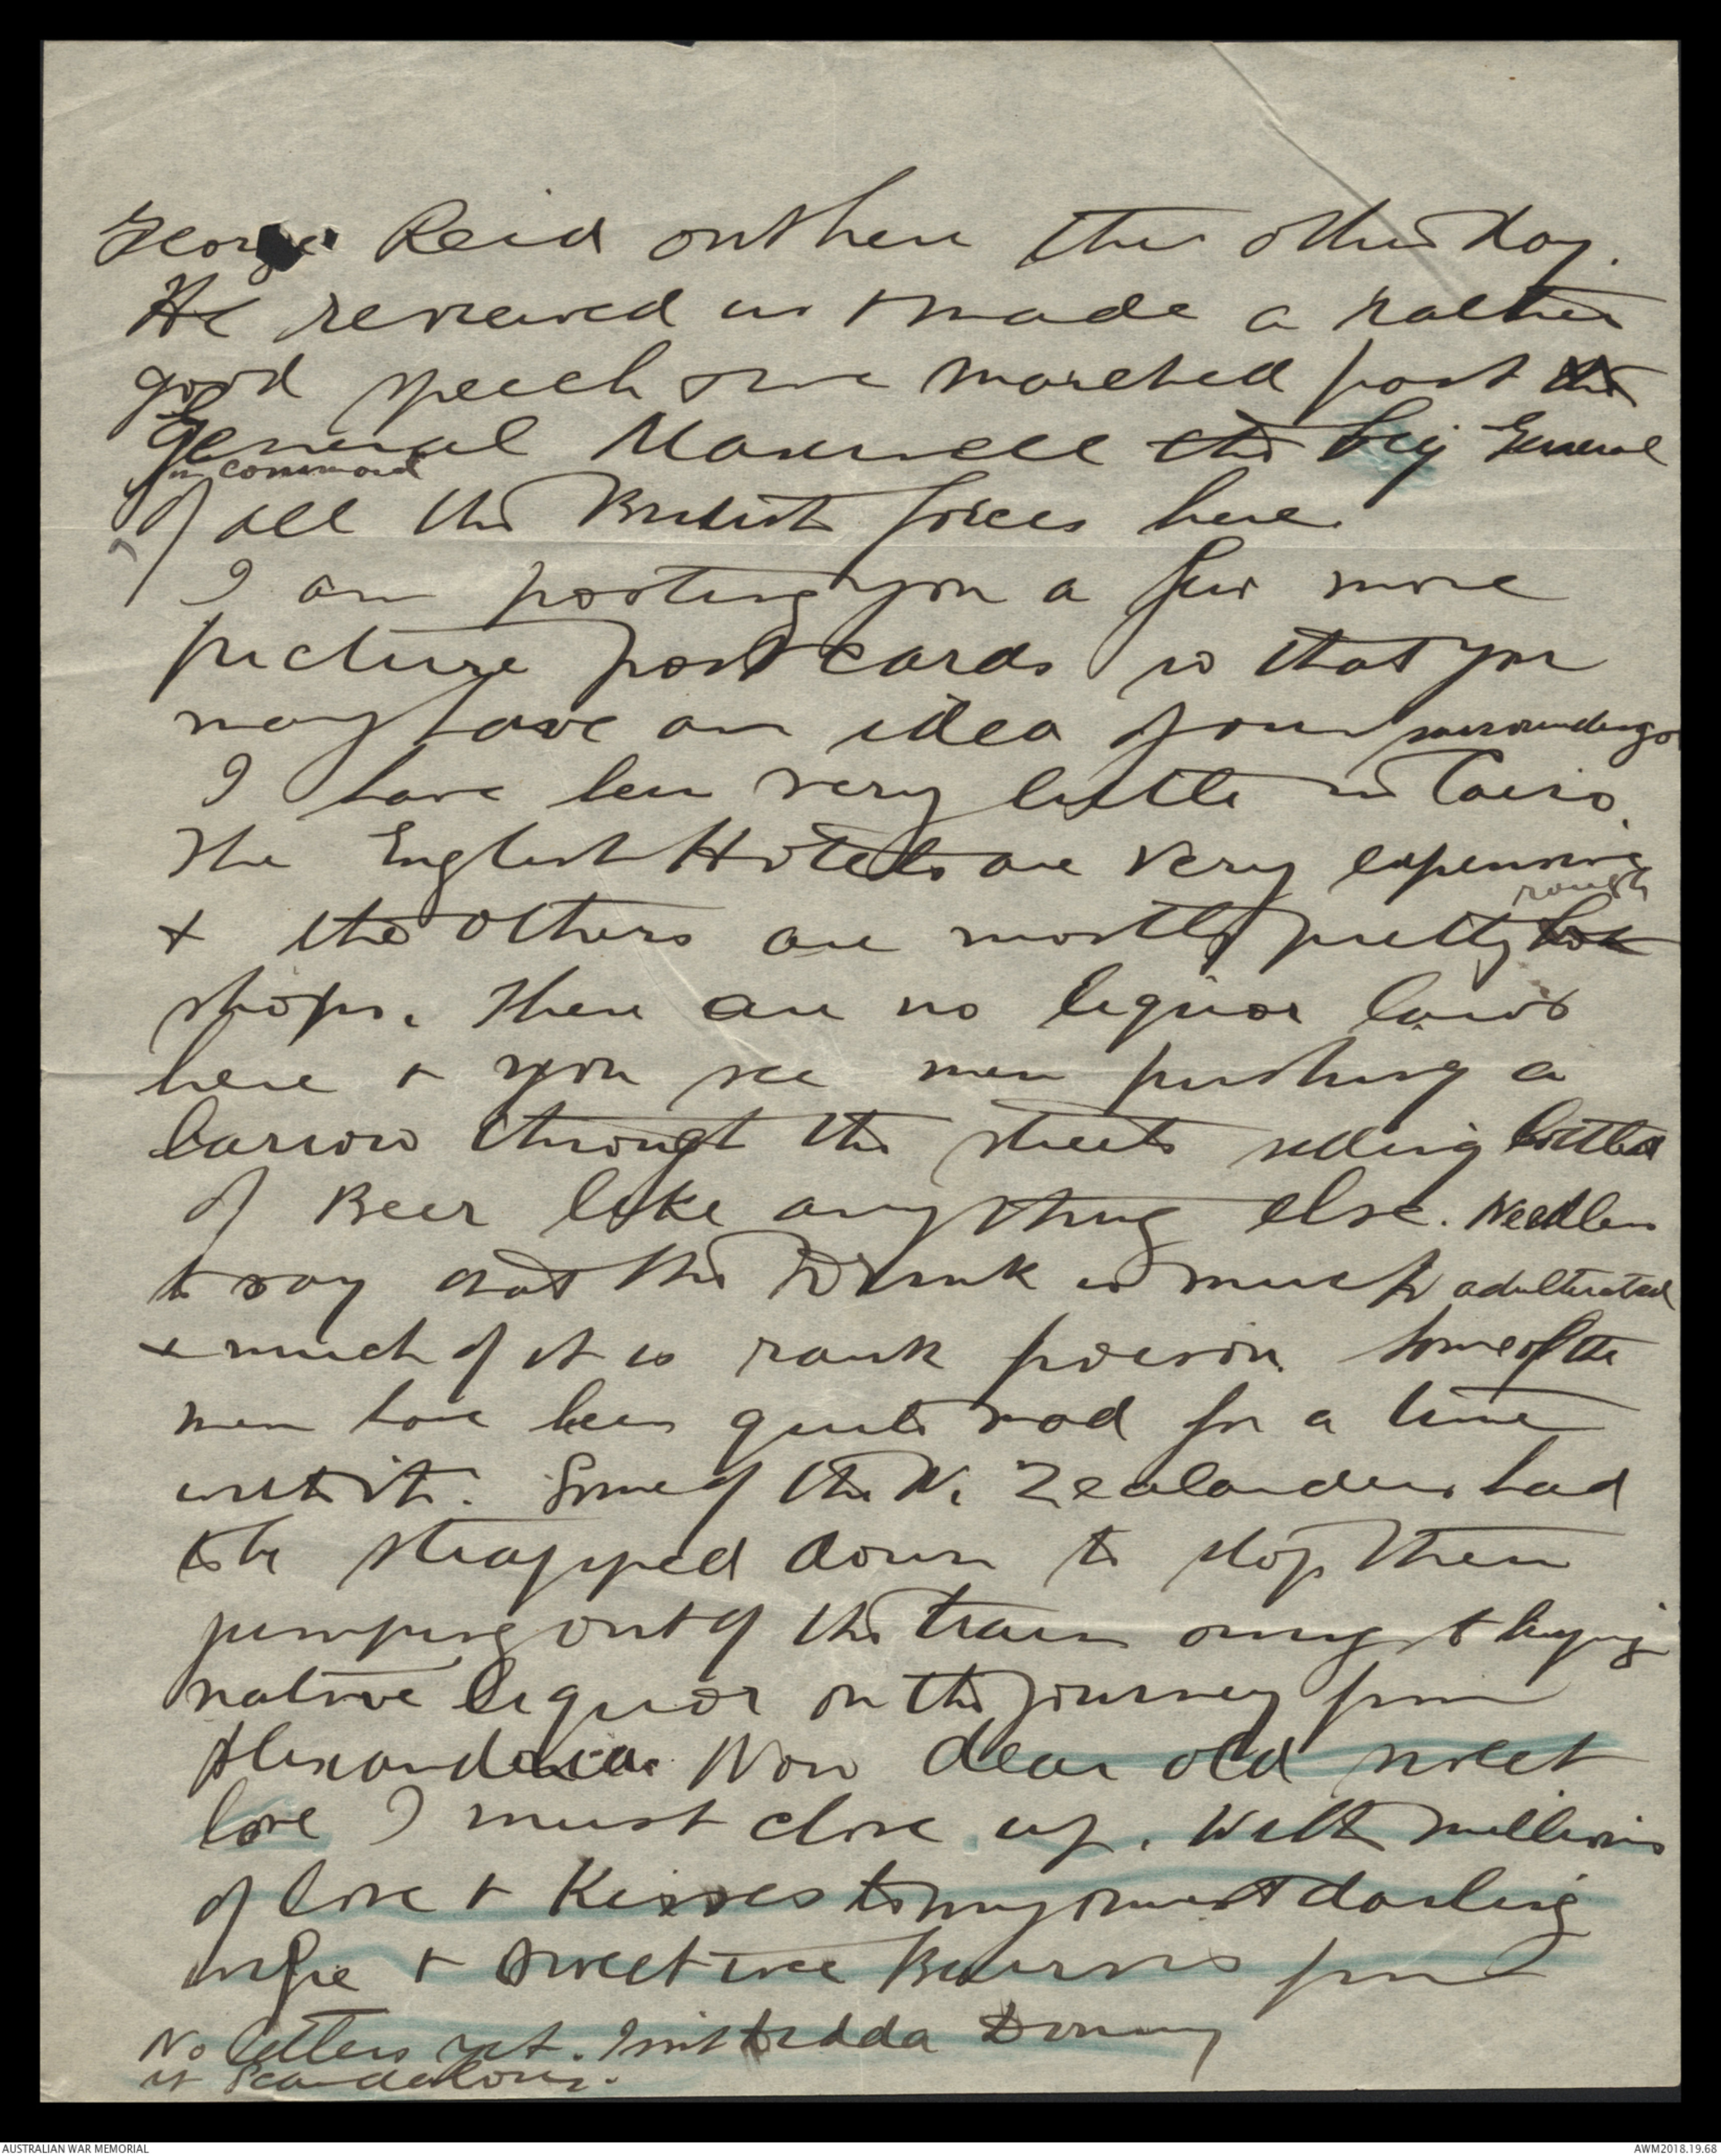 George Reid out here the other day.
He reviewed us & made a rather
good speech & we marched past the
General Maxwell the big General
in command
of all the British forces here.
I am posting you a few more
picture post cards so that you
may have an idea of our surroundings
I have been very little in Cairo.
The English Hotels are very expensive
rough
& the others are mostly pretty
shops. There are no liquor laws
here & you see men pushing a
barrow through the streets selling bottles
of Beer like anything else. Needless
to say that the Drink is much adulterated
& much of it is rank poison. Some of the
men have been quite mad for a time
with it. Some of the N. Zealanders had
to be strapped down to stop them
jumping out of the train owing to buying
native liquor on the journey from
Alexandria. Now dear old sweet
love I must close up. With millions
of love & Kisses to my sweet darling
wife & sweet wee Bairns from
No letters yet. Isnt Dadda
it scandalous.